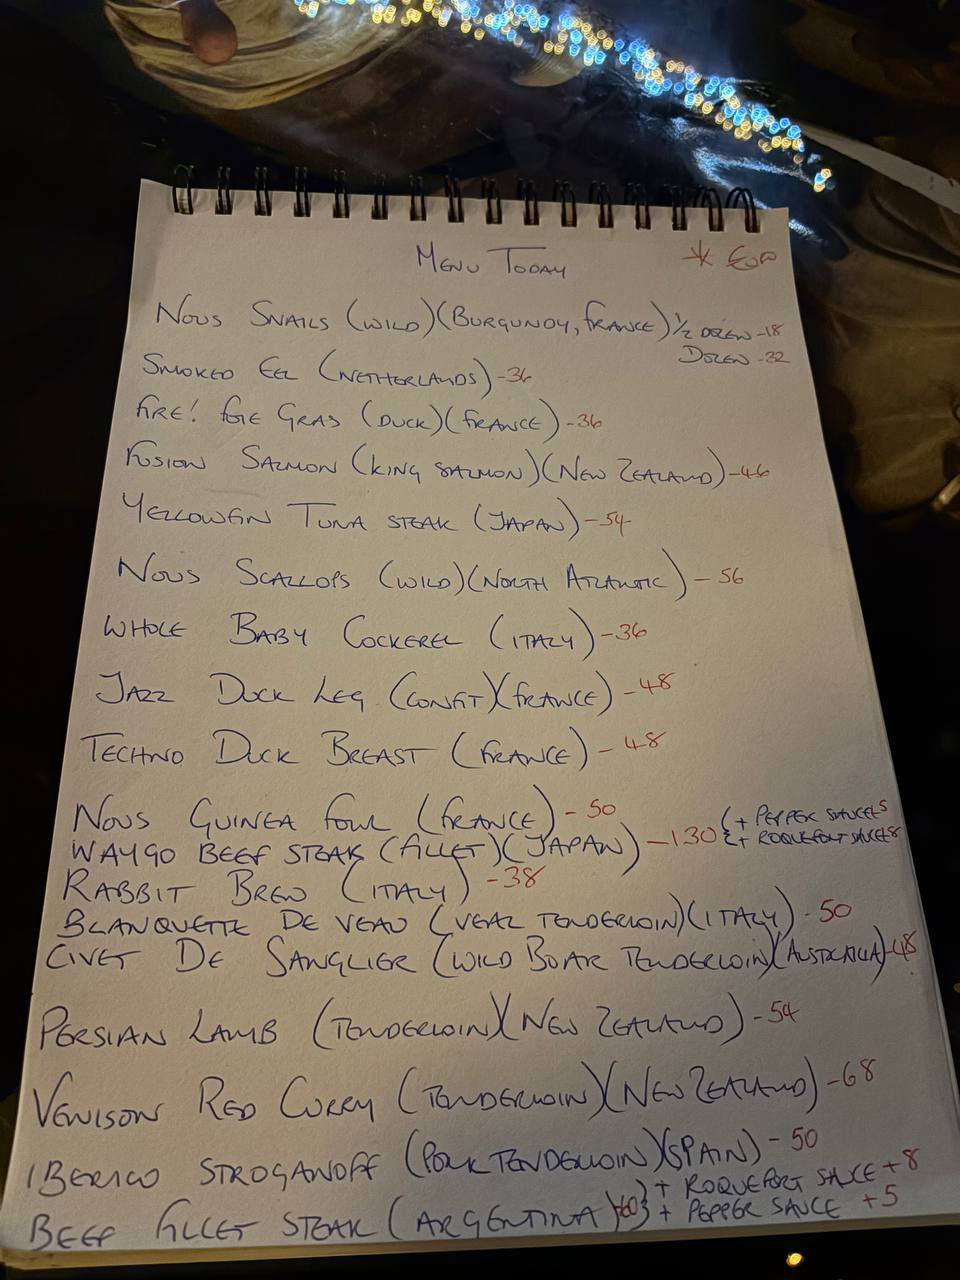 MENU TODAY * EUR
NOUS SNAILS (WILD)(BURGUNDY, FRANCE) 1/2 DOZEN -18
DOZEN -32
SMOKED EEL (NETHERLANDS) -36
FIRE! FOIE GRAS (DUCK)(FRANCE) -36
FUSION SALMON (KING SALMON)(NEW ZEALAND) -46
YELLOWFIN TUNA STEAK (JAPAN) -54
NOUS SCALLOPS (WILD)(NORTH ATLANTIC) - 56
WHOLE BABY COCKEREL (ITALY) -36
JAZZ DUCK LEG (CONFIT)(FRANCE) -48
TECHNO DUCK BREAST (FRANCE) - 48
NOUS GUINEA FOWL (FRANCE) - 50
WAYGO BEEF STEAK (FILLET)(JAPAN) -130 { + PEPPER SAUCE 5
+ ROQUEFORT SAUCE 8
RABBIT BREW (ITALY) -38
BLANQUETTE DE VEAU (VEAL TENDERLOIN)(ITALY) - 50
CIVET DE SANGLIER (WILD BOAR TENDERLOIN)(AUSTRALIA) -48
PERSIAN LAMB (TENDERLOIN)(NEW ZEALAND) -54
VENISON RED CURRY (TENDERLOIN)(NEW ZEALAND) -68
IBERICO STROGANOFF (PORK TENDERLOIN)(SPAIN) - 50
+ ROQUEFORT SAUCE +8
BEEF FILLET STEAK (ARGENTINA) 60 } + PEPPER SAUCE +5